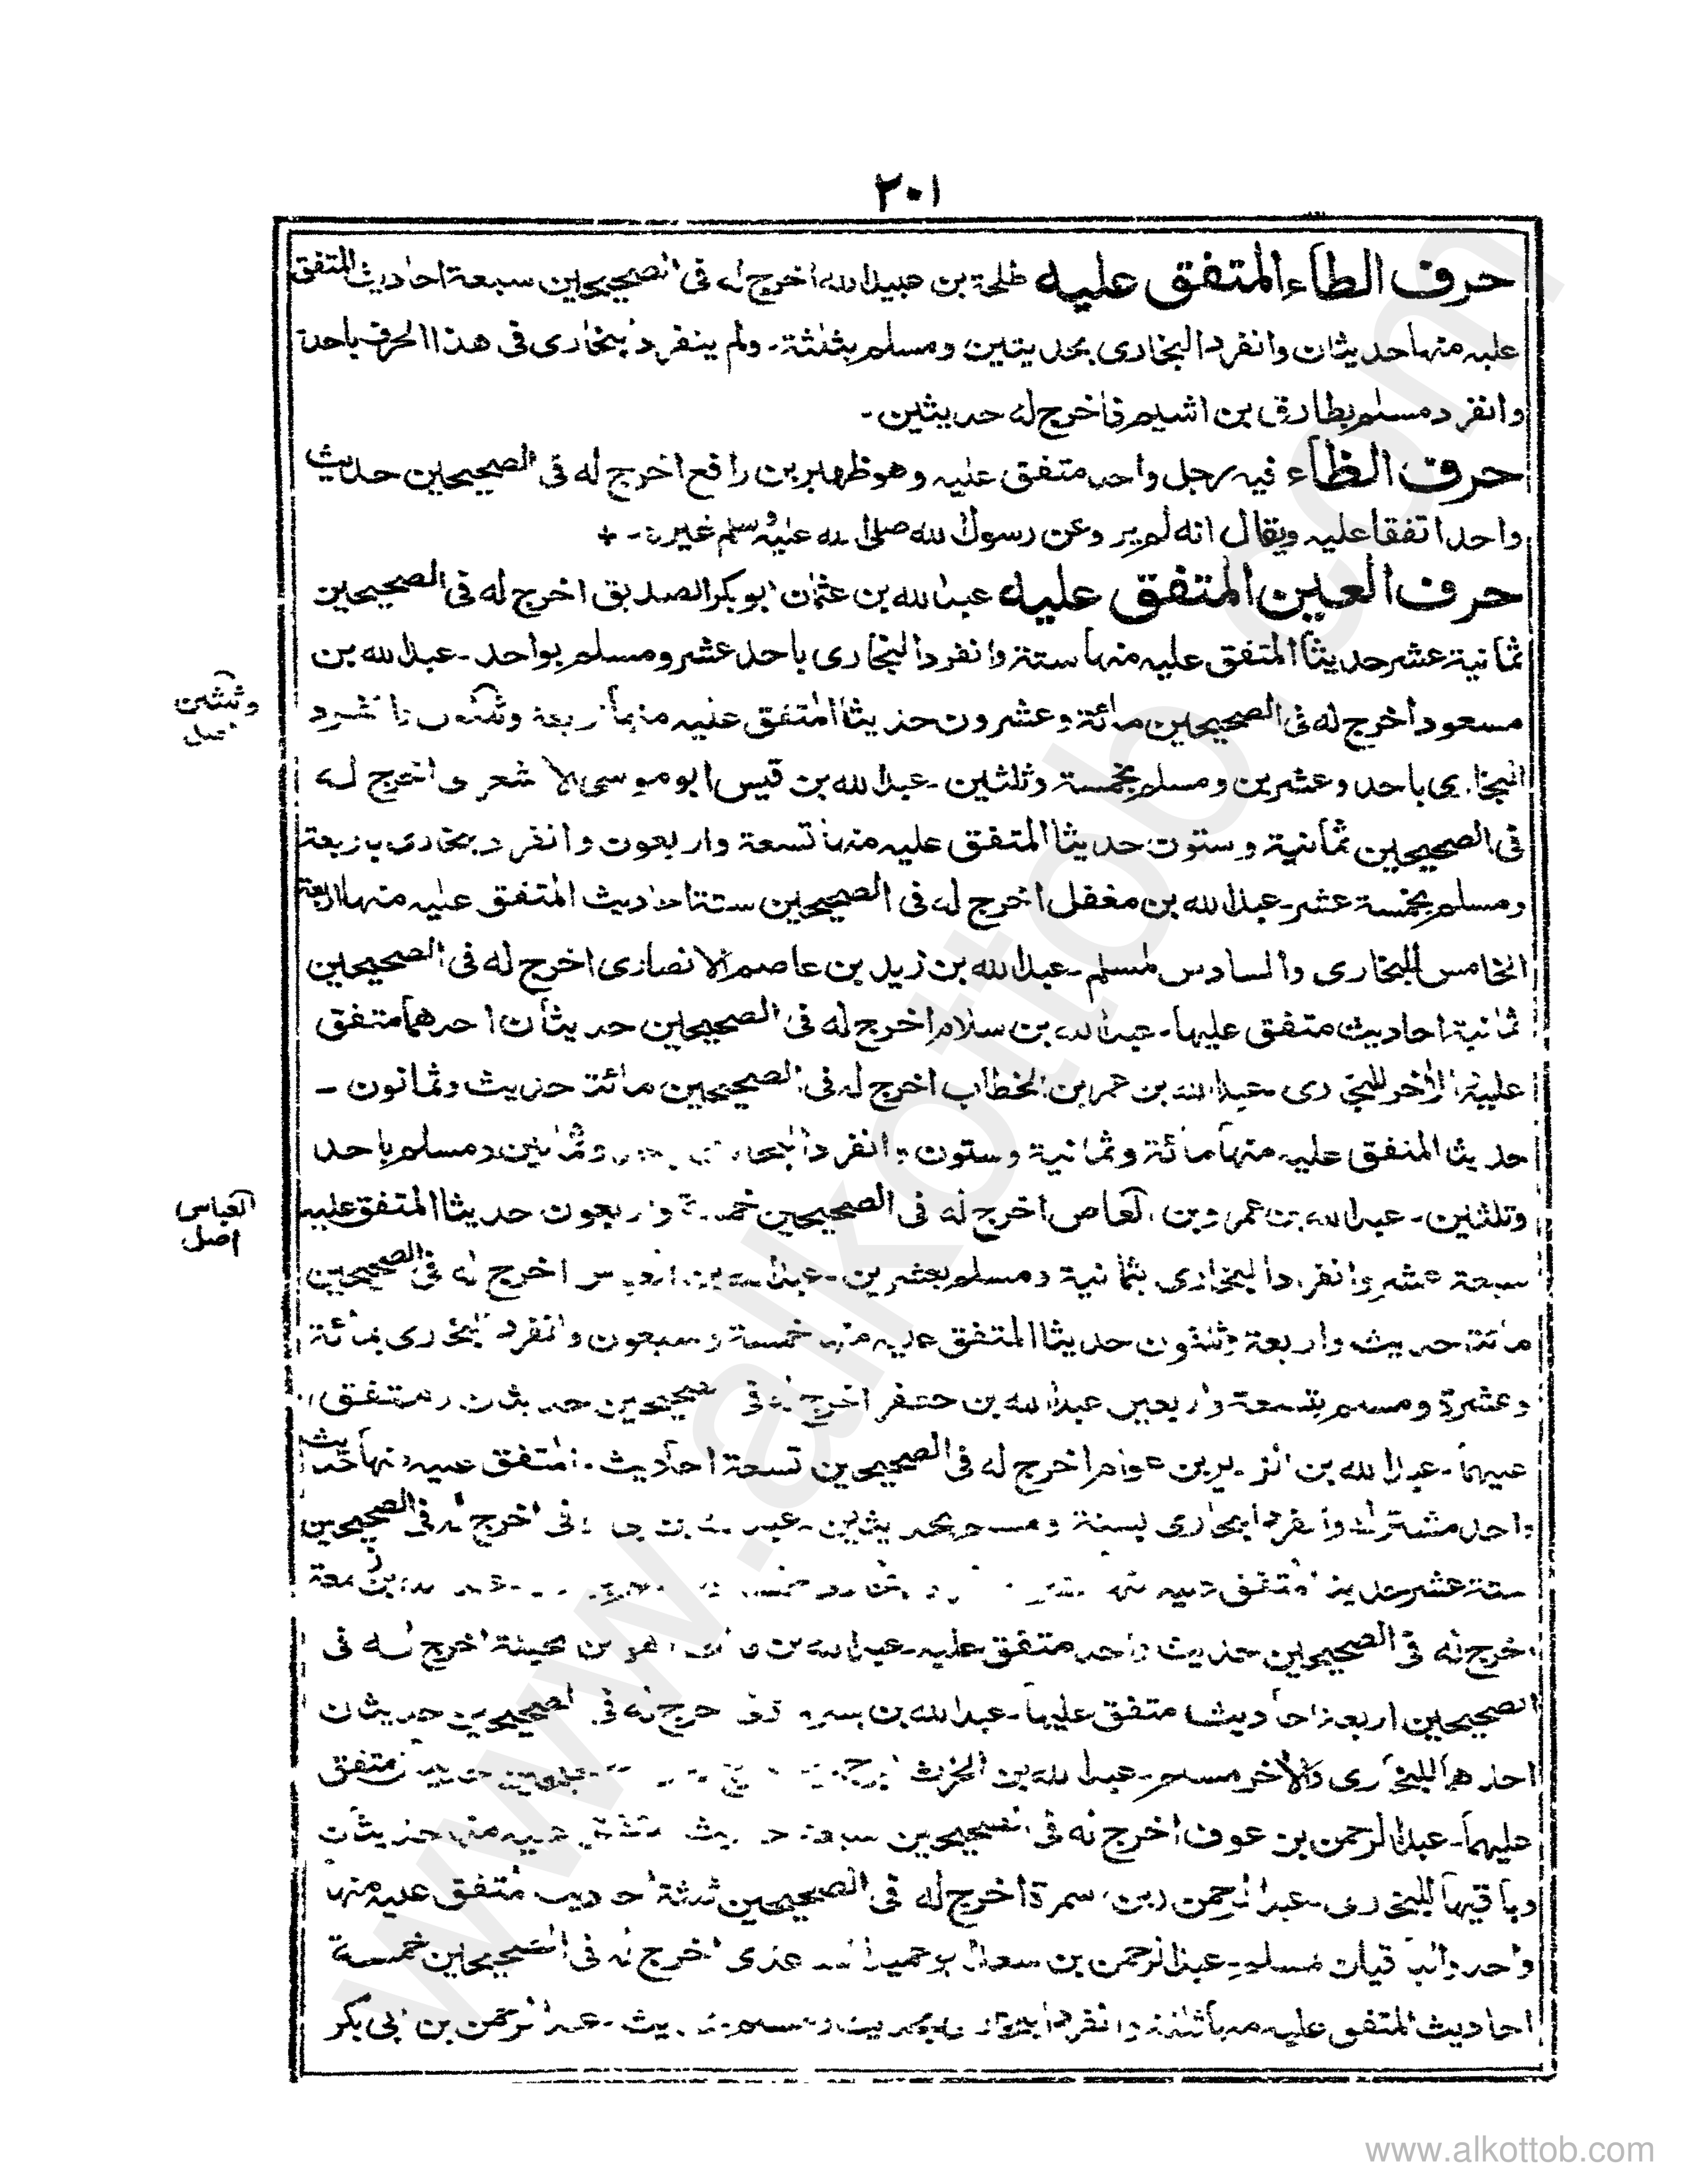 ٢٠١
حرف الطاء المتفق عليه طلحة بن عبيد الله اخرج له فى الصحيحين سبعة احاديث المتفق
عليه منها حديثان وانفرد البخارى بحديثين ومسلم بثلثة - ولم ينفرد البخارى فى هذا الحرف باحد
وانفرد مسلم بطارق بن اشيم فاخرج له حديثين -
حرف الظاء فيه رجل واحد متفق عليه وهو ظهير بن رافع اخرج له فى الصحيحين حديث
واحدا تفقا عليه ويقال انه لم يرو عن رسول الله صلى الله عليه وسلم غيره - +
حرف العين المتفق عليه عبد الله بن عثمان ابو بكر الصديق اخرج له فى الصحيحين
ثمانية عشر حديثا المتفق عليه منها ستة وانفرد البخارى باحد عشر ومسلم بواحد - عبد الله بن
مسعود اخرج له فى الصحيحين مائة وعشرون حديثا المتفق عليه منها اربعة وانفرد
البخارى باحد وعشرين ومسلم بخمسة وثلثين - عبد الله بن قيس ابو موسى الاشعرى اخرج له
فى الصحيحين ثمانية وستون حديثا المتفق عليه منها تسعة واربعون وانفرد البخارى باربعة
ومسلم بخمسة عشر - عبد الله بن مغفل اخرج له فى الصحيحين ستة احاديث المتفق عليه منها اربعة
الخامس للبخارى والسادس لمسلم - عبد الله بن زيد بن عاصم الانصارى اخرج له فى الصحيحين
ثمانية احاديث متفق عليها - عبد الله بن سلام اخرج له فى الصحيحين حديثان احدهما متفق
عليه الآخر للبخارى عبد الله بن عمر بن الخطاب اخرج له فى الصحيحين مائة حديث وثمانون -
حديثا المتفق عليه منها مائة وثمانية وستون وانفرد البخارى وثمانين ومسلم باحد
وثلثين - عبد الله بن عمرو بن العاص اخرج له فى الصحيحين خمسة واربعون حديثا المتفق عليه
سبعة عشر وانفرد البخارى بثمانية ومسلم بعشرين - عبد الله بن اخرج له فى الصحيحين
مائة حديث واربعة وثلثون حديثا المتفق عليه منها خمسة وسبعون وانفرد البخارى بمائة
وعشرة ومسلم بتسعة واربعين عبد الله بن جعفر اخرج له فى الصحيحين حديثان متفق
عليهما - عبد الله بن الزبير بن عوام اخرج له فى الصحيحين تسعة احاديث - المتفق عليه منها حديث
واحد مشترك وانفرد البخارى بستة ومسلم بحديثين - عبد الله بن اخرج له فى الصحيحين
ستة عشر حديثا المتفق عليه
اخرج له فى الصحيحين حديث واحد متفق عليه - عبد الله بن مالك هو ابن بحينة اخرج له فى
الصحيحين اربعة احاديث متفق عليها - عبد الله بن بسر اخرج له فى الصحيحين حديثان
احدهما للبخارى والآخر مسلم - عبد الله بن الحرث متفق
عليهما - عبد الرحمن بن عوف اخرج له فى الصحيحين سبعة احاديث متفق عليه منها حديثان
وباقيها للبخارى - عبد الرحمن بن سمرة اخرج له فى الصحيحين ثلثة احاديث متفق عليه منها
واحد والباقيان مسلم - عبد الرحمن بن سعد ابو حميد الساعدى اخرج له فى الصحيحين خمسة
احاديث المتفق عليه منها ثلثة وانفرد البخارى بحديث ومسلم بحديث - عبد الرحمن بن ابى بكر
وثلثين
اصل
العباس
اصل
www.alkottob.com
www.alkottob.com